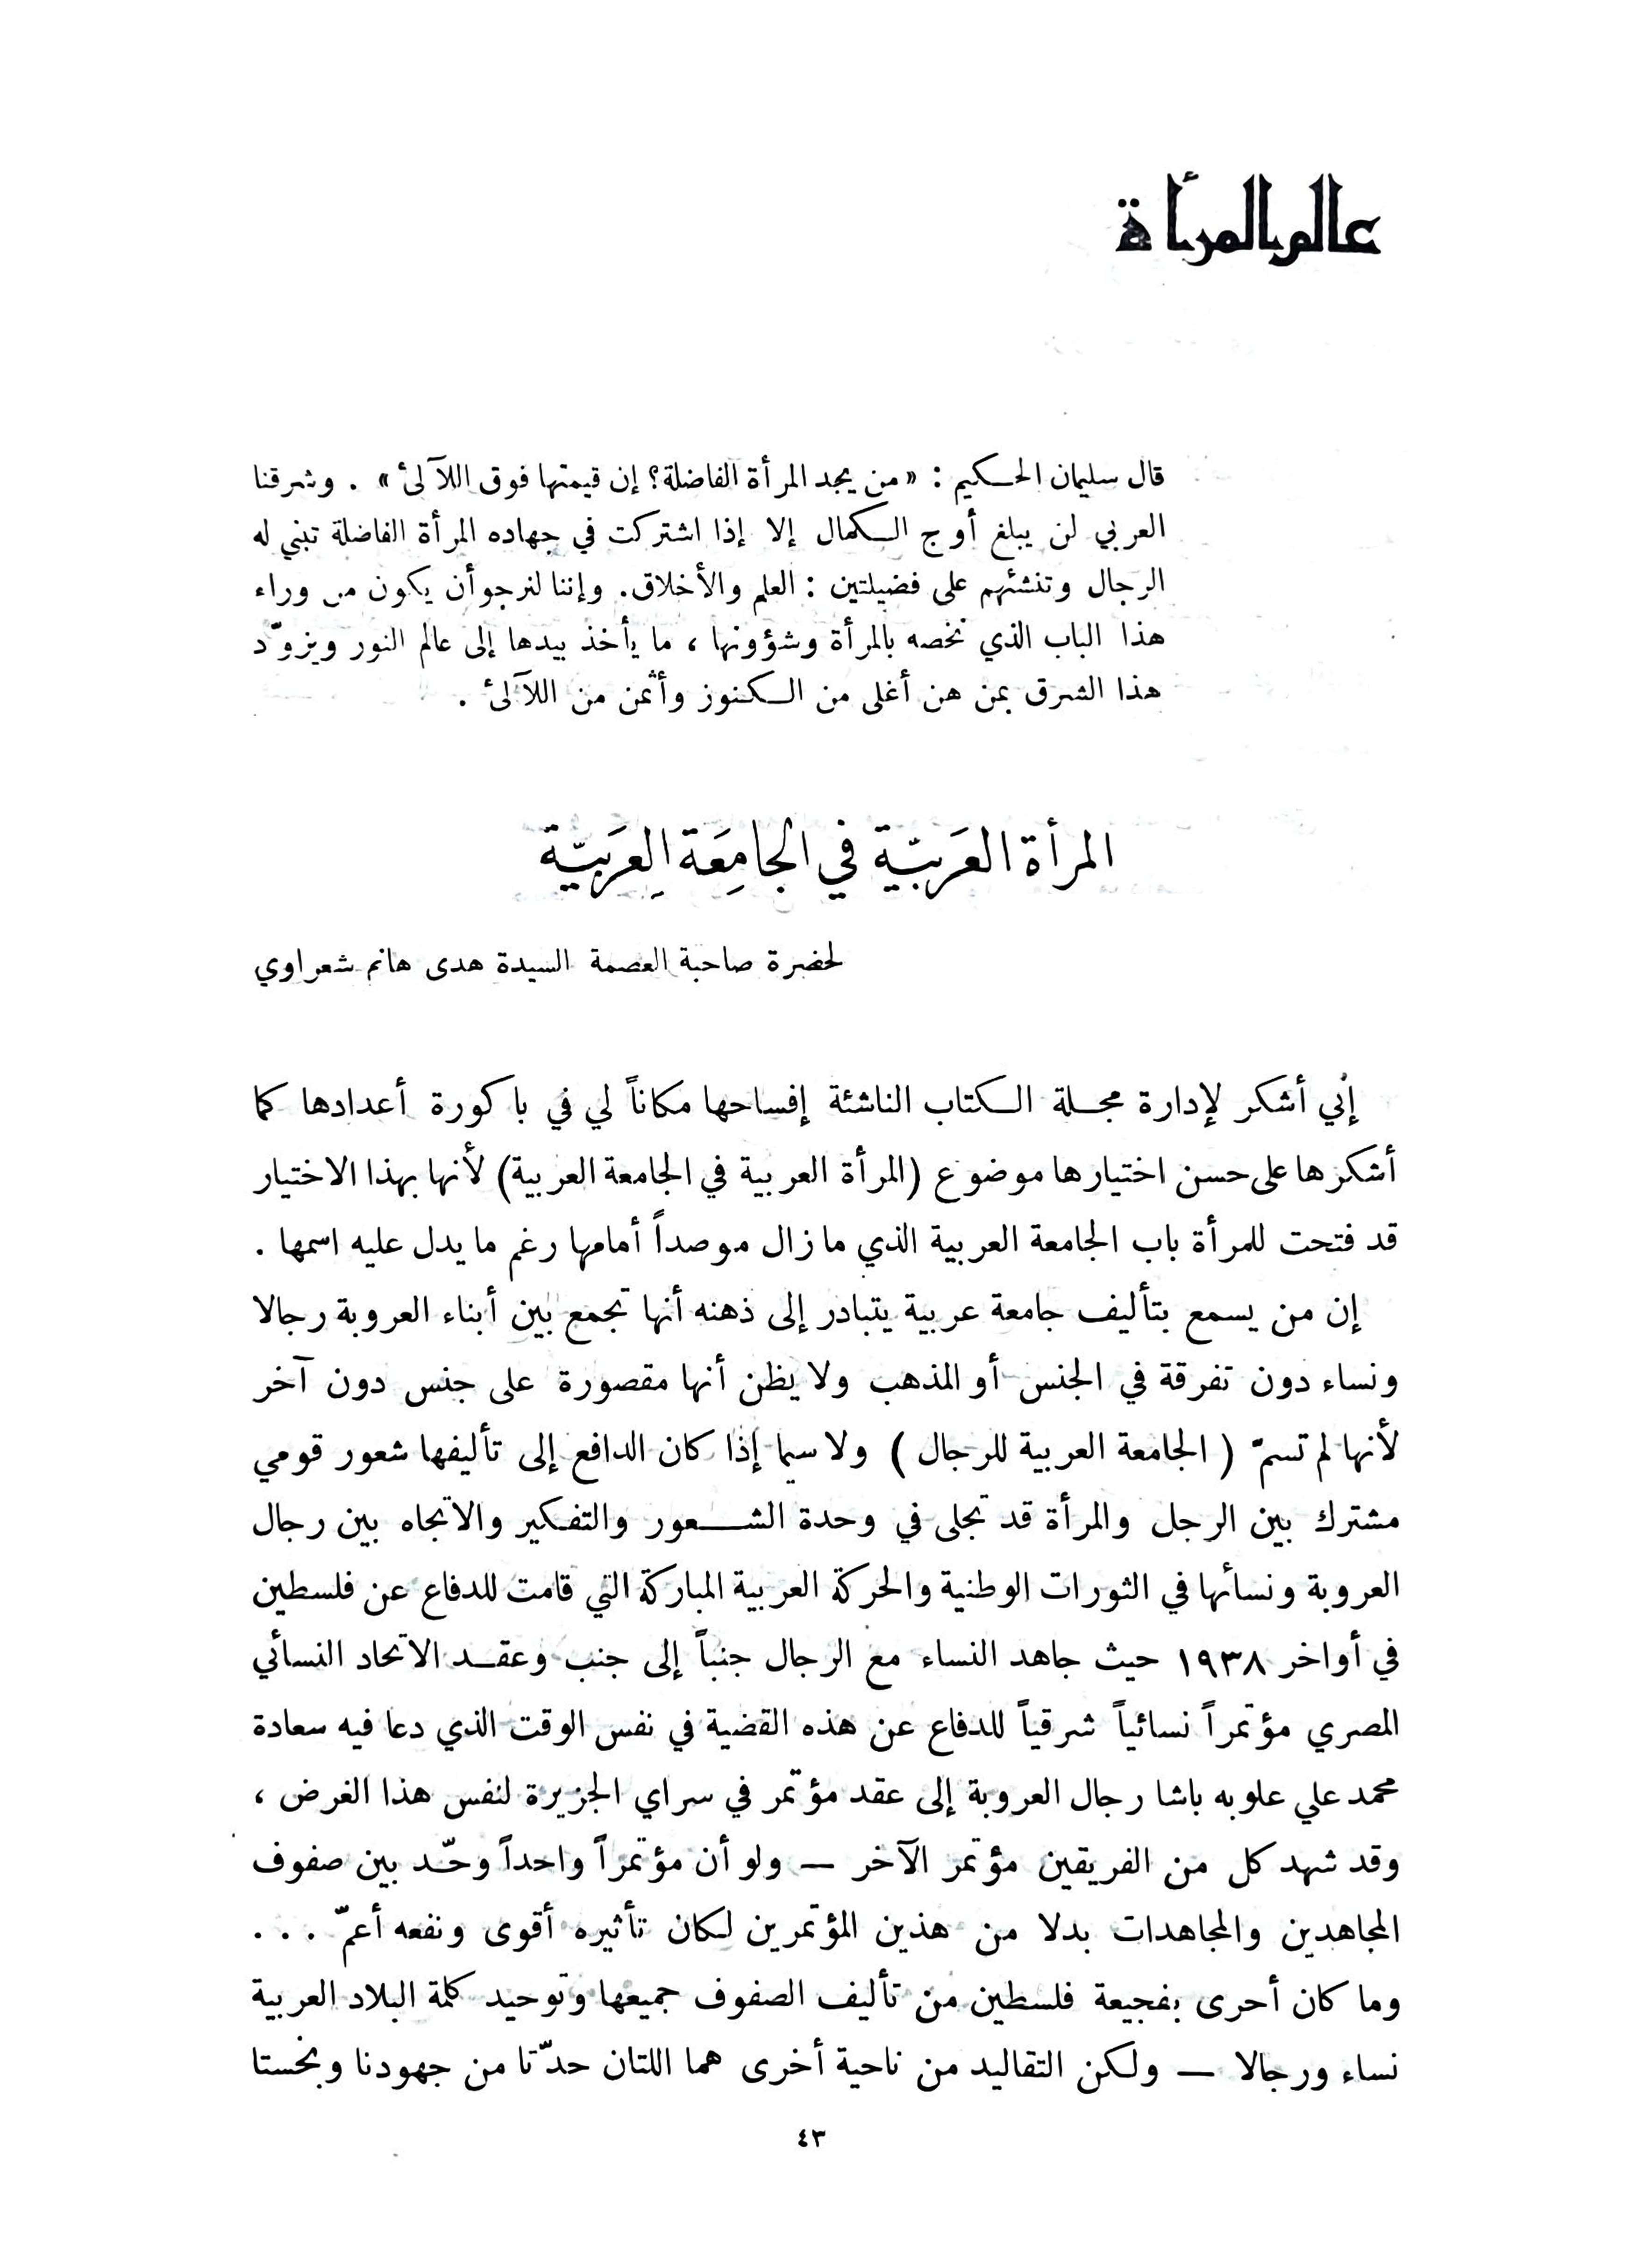 عالم المرأة
قال سليمان الحكيم : «من يجد المرأة الفاضلة؟ إن قيمتها فوق اللآلئ» . وشرقنا
العربي لن يبلغ أوج الكمال إلا إذا اشتركت في جهاده المرأة الفاضلة تبني له
الرجال وتنشئهم على فضيلتين : العلم والأخلاق. وإننا لنرجو أن يكون من وراء
هذا الباب الذي نخصه بالمرأة وشؤونها ، ما يأخذ بيدها إلى عالم النور ويزوّد
هذا الشرق بمن هن أغلى من الكنوز وأثمن من اللآلئ .
المرأة العَربيّة في الجامِعَة العَربيّة
لحضرة صاحبة العصمة السيدة هدى هانم شعراوي
إني أشكر لإدارة مجلة الكتاب الناشئة إفساحها مكاناً لي في باكورة أعدادها كما
أشكرها على حسن اختيارها موضوع (المرأة العربية في الجامعة العربية) لأنها بهذا الاختيار
قد فتحت للمرأة باب الجامعة العربية الذي مازال موصداً أمامها رغم ما يدل عليه اسمها .
إن من يسمع بتأليف جامعة عربية يتبادر إلى ذهنه أنها تجمع بين أبناء العروبة رجالا
ونساء دون تفرقة في الجنس أو المذهب ولا يظن أنها مقصورة على جنس دون آخر
لأنها لم تسمّ ( الجامعة العربية للرجال ) ولا سيما إذا كان الدافع إلى تأليفها شعور قومي
مشترك بين الرجل والمرأة قد تجلى في وحدة الشعور والتفكير والاتجاه بين رجال
العروبة ونسائها في الثورات الوطنية والحركة العربية المباركة التي قامت للدفاع عن فلسطين
في أواخر ١٩٣٨ حيث جاهد النساء مع الرجال جنباً إلى جنب وعقد الاتحاد النسائي
المصري مؤتمراً نسائياً شرقياً للدفاع عن هذه القضية في نفس الوقت الذي دعا فيه سعادة
محمد علي علوبه باشا رجال العروبة إلى عقد مؤتمر في سراي الجزيرة لنفس هذا الغرض ،
وقد شهد كل من الفريقين مؤتمر الآخر — ولو أن مؤتمراً واحداً وحّد بين صفوف
المجاهدين والمجاهدات بدلا من هذين المؤتمرين لكان تأثيره أقوى ونفعه أعمّ . . .
وما كان أحرى بفجيعة فلسطين من تأليف الصفوف جميعها وتوحيد كلمة البلاد العربية
نساء ورجالا — ولكن التقاليد من ناحية أخرى هما اللتان حدّتا من جهودنا وبخستا
٤٣